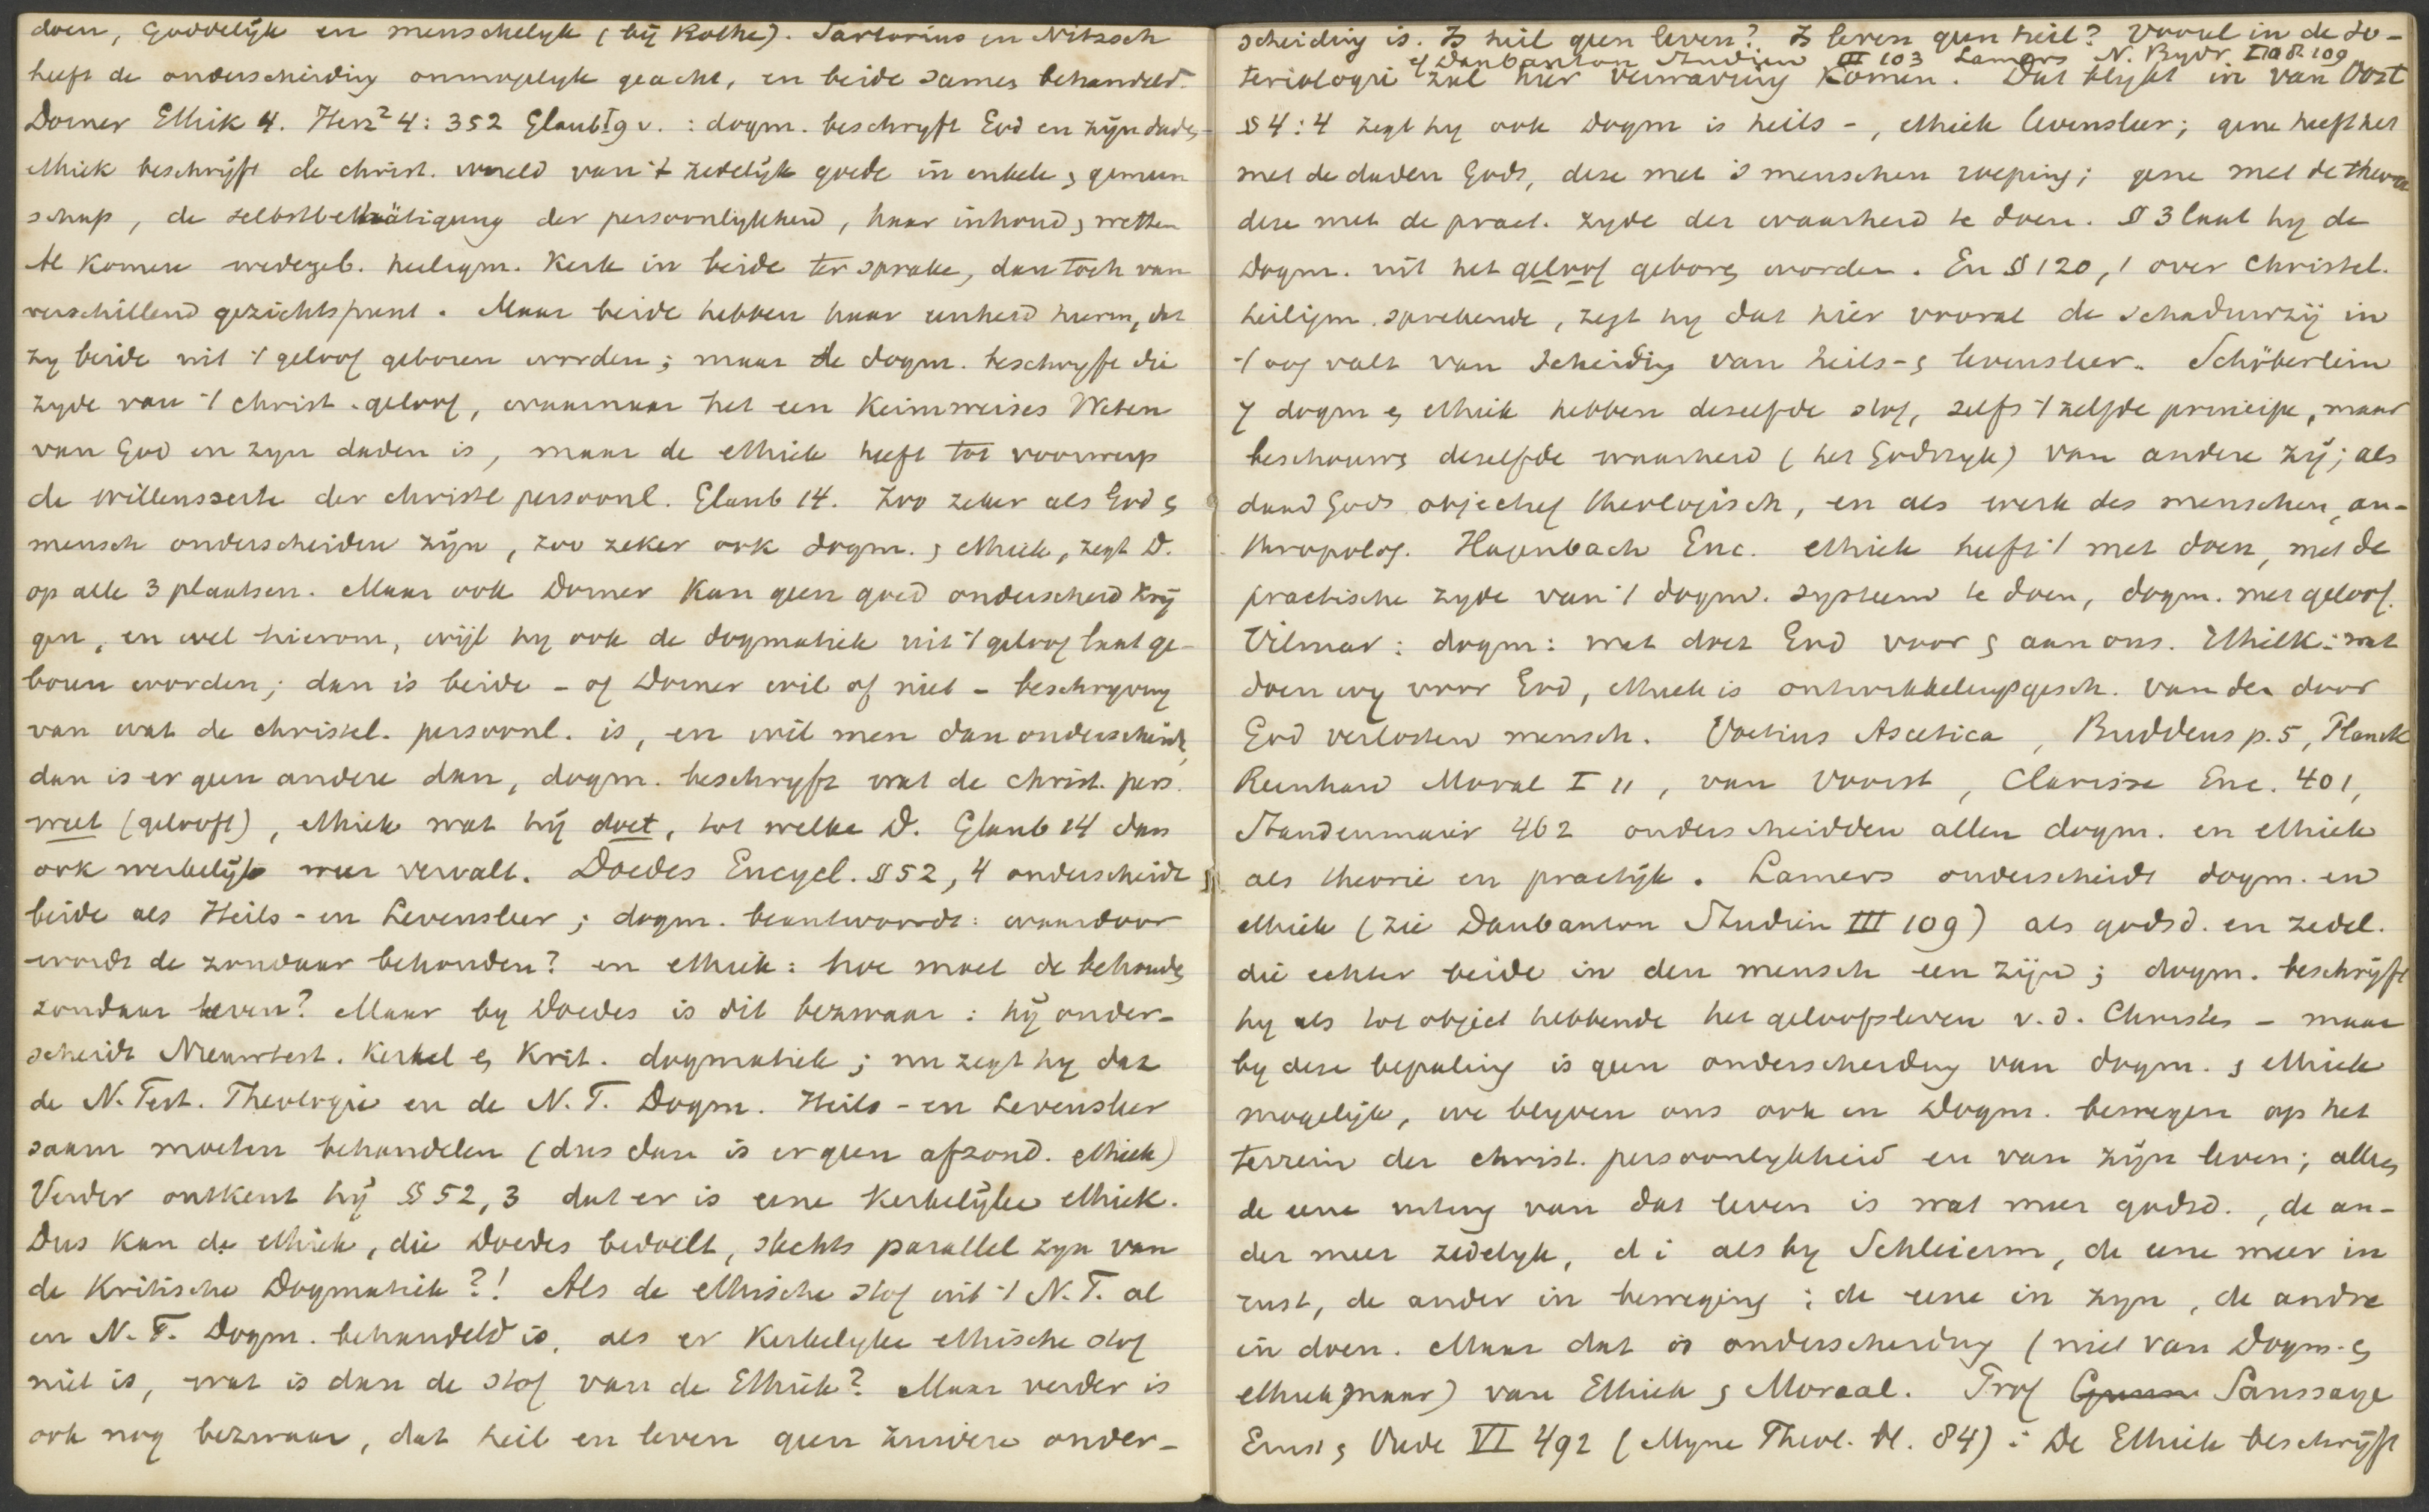 doen, Goddelijk en menschelijk (bij Rothe). Sartorius en Nitzsch
heeft de onderscheiding onmogelijk geacht, en beide samen behandeld.
Dorner Ethik 4. Herz² 4: 352 Glaub I 9 v. : dogm. beschryft God en zijn daden,
ethiek beschrijft de christ. wereld van 't zedelijk goede in enkele & gemeen
schap, de selbstbethätigung der persoonlykheid, haar inhoud & wetten
Al komen wedergeb. heiligm. Kerk in beide ter sprake, dan toch van
verschillend gezichtspunt. Maar beide hebben haar eenheid hierin, dat
zy beide uit 't geloof geboren worden; maar de dogm. beschryft die
zyde van 't christ. geloof, waarnaar het een Keimweises Weten
van God en zyn daden is, maar de ethiek heeft tot voorwerp
de willenszeite der christel persoonl. Glaub 14. Zoo zeker als God &
mensch onderscheiden zijn, zoo zeker ook dogm. & ethiek, zegt D.
op alle 3 plaatsen. Maar ook Dorner kan geen goed onderscheid krij
gen, en wel hierom, wijl hy ook de dogmatiek uit 't geloof laat ge-
boren worden; dan is beide - of Dorner wil of niet - beschryving
van wat de christel. persoonl. is, en wil men dan onderscheid,
dan is er geen andere dan, dogm. beschryft wat de christ. pers.
weet (gelooft), ethiek wat hij doet, tot welke D. Glaub 14 dan
ook werkelijk weer vervalt. Doedes Encycl. § 52, 4 onderscheidt
beide als Heils- en Levensleer; dogm. beantwoordt: waardoor
wordt de zondaar behouden? en ethiek: hoe moet de behoud.
zondaar leven? Maar by Doedes is dit bezwaar: hij onder-
scheidt Nieuwtest. Kerkel & Krit. dogmatiek; nu zegt hy dat
de N. Test. Theologie en de N.T. Dogm. Heils- en Levensleer
saam moeten behandelen (dus dan is er geen afzond. ethiek)
Verder ontkent hij § 52, 3 dat er is eene Kerkelijke ethiek.
Dus kan de ethiek, die Doedes bedoelt, slechts parallel zyn van
de Kritische Dogmatiek?! Als de ethische stof uit 't N.T. al
in N.T. Dogm. behandeld is, als er Kerkelyke ethische stof
niet is, wat is dan de stof van de Ethiek? Maar verder is
ook nog bezwaar, dat heil en leven geen zuivere onder-
scheiding is. Is heil geen leven? Is leven geen heil? Vooral in de So-
cf Daubanton Studien III 103 Lamers N. Bydr.
teriologie zal hier verwarring komen. Dat blijkt in van Oost
§ 4: 4 zegt hy ook Dogm is heils-, ethiek levensleer; gene heeft het
met de daden Gods, deze met 's menschen roeping; gene met de theor
deze met de pract. zyde der waarheid te doen. § 3 laat hy de
Dogm. uit het geloof geboren worden. En § 120, 1 over Christel.
heiligm. sprekende, zegt hy dat hier vooral de schaduwzij in
't oog valt van scheiding van heils- & levensleer. Schöberlein
7 dogm & ethiek hebben dezelfde stof, zelfs 't zelfde principe, maar
beschouwen dezelfde waarheid (het Godsryk) van andere zij; als
daad Gods objectief theologisch, en als werk des menschen, an-
thropolog. Hagenbach Enc. ethiek heeft 't met doen, met de
practische zyde van 't dogm. systeem te doen, dogm. met geloof.
Vilmar: dogm: wat doet God voor & aan ons. Ethiek: wat
doen wy voor God, ethiek is ontwikkelingsgesch. van den door
God verlosten mensch. Voetius Ascetica, Buddeus p. 5, Planck
Reinhard Moral I 11, van Voorst, Clarisse Enc. 401,
Staudenmaier 462 onderscheidden allen dogm. en ethiek
als theorie en practijk. Lamers onderscheidt dogm. en
ethiek (zie Daubanton Studien III 109) als godsd. en zedel.
die echter beide in den mensch een zijn; dogm. beschrijft
hy als tot object hebbende het geloofsleven v.d. Christen - maar
by deze bepaling is geen onderscheiding van dogm. & ethiek
mogelijk, we blyven ons ook in Dogm. bewegen op het
terrein der christ. persoonlykheid en van zijn leven; alleen
de eene uiting van dat leven is wat meer godsd., de an-
der meer zedelyk, d i als by Schleierm, de eene meer in
rust, de ander in beweging; de eene in zyn, de andre
in doen. Maar dat is onderscheiding (niet van Dogm. &
ethiek, maar) van Ethiek & Moraal. Prof Saussaye
Ernst & Vrede VI 492 (Myne Theol. bl. 84): De Ethiek beschrijft